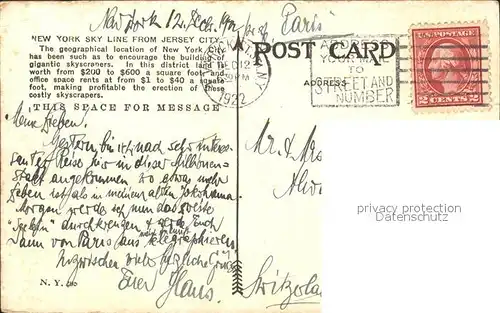 New York 12. Dec. 1922
Paris
NEW YORK SKY LINE FROM JERSEY CITY.
The geographical location of New York City
has been such as to encourage the building of
gigantic skyscrapers. In this district land is
worth from $200 to $600 a square foot and
office space rents at from $1 to $40 a square
foot, making profitable the erection of these
costly skyscrapers.
THIS SPACE FOR MESSAGE
POST CARD
ADDRESS
N.Y.
DEC 12
PM
1922
YOUR MAIL
TO
STREET AND
NUMBER
U.S. POSTAGE
2 CENTS 2
Meine Lieben!
Gestern bin ich nach sehr interes-
santer Reise hier in dieser Millionen-
stadt angekommen wo etwas mehr
Leben ist als in meinem alten Yokohama
Morgen werde ich nun das zweite
durchkreuzen & werde Euch
dann von Paris aus telegraphieren
Inzwischen viele herzliche Grüsse
Euer Hans.
Mr. & Mrs
Switzerla
N. Y.
privacy protection
Datenschutz